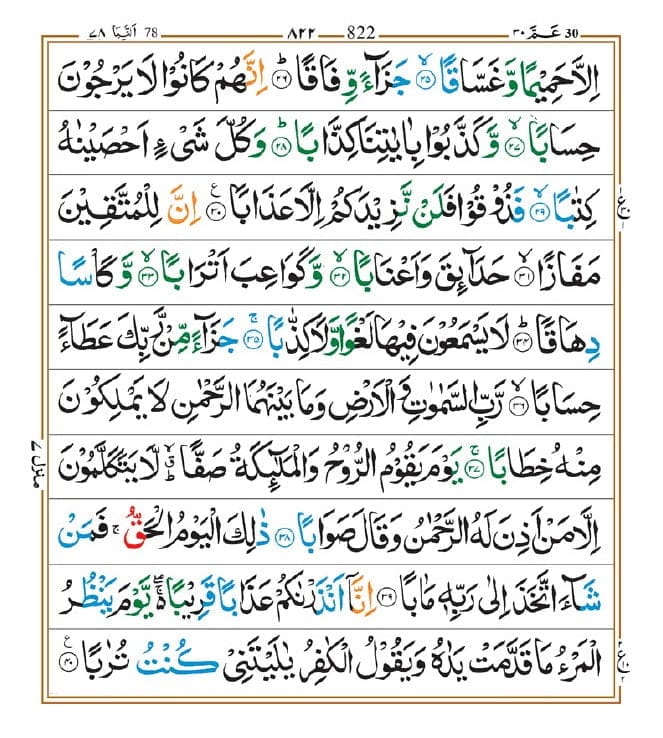 30 عَـمَّ ٣٠ 822 ٨٢٢ 78 اَلنَّبَا ٧٨
اِلَّا حَمِيْمًا وَّ غَسَّاقًا ۙ‏﴿۲۵﴾ جَزَآءً وِّفَاقًا ؕ‏﴿۲۶﴾ اِنَّهُمْ كَانُوْا لَا يَرْجُوْنَ
حِسَابًا ۙ‏﴿۲۷﴾ وَّ كَذَّبُوْا بِاٰيٰتِنَا كِذَّابًا ؕ‏﴿۲۸﴾ وَكُلَّ شَىْءٍ اَحْصَيْنٰهُ
كِتٰبًا ۙ‏﴿۲۹﴾ فَذُوْقُوْا فَلَنْ نَّزِيْدَكُمْ اِلَّا عَذَابًا ‏﴿۳۰﴾ اِنَّ لِلْمُتَّقِيْنَ
ع
مَفَازًا ۙ‏﴿۳۱﴾ حَدَآئِقَ وَاَعْنَابًا ۙ‏﴿۳۲﴾ وَّ كَوَاعِبَ اَتْرَابًا ۙ‏﴿۳۳﴾ وَّ كَاْسًا
دِهَاقًا ؕ‏﴿۳۴﴾ لَا يَسْمَعُوْنَ فِيْهَا لَغْوًا وَّلَا كِذّٰبًا ۚ‏﴿۳۵﴾ جَزَآءً مِّنْ رَّبِّكَ عَطَآءً
حِسَابًا ۙ‏﴿۳۶﴾ رَّبِّ السَّمٰوٰتِ وَ الْاَرْضِ وَمَا بَيْنَهُمَا الرَّحْمٰنِ لَا يَمْلِكُوْنَ
مِنْهُ خِطَابًا ۚ‏﴿۳۷﴾ يَوْمَ يَقُوْمُ الرُّوْحُ وَالْمَلٰٓئِكَةُ صَفًّا ۙؕ لَّا يَتَكَلَّمُوْنَ
منزل ٧
اِلَّا مَنْ اَذِنَ لَهُ الرَّحْمٰنُ وَقَالَ صَوَابًا ‏﴿۳۸﴾ ذٰلِكَ الْيَوْمُ الْحَقُّ ۚ فَمَنْ
شَآءَ اتَّخَذَ اِلٰى رَبِّهٖ مَاٰبًا ‏﴿۳۹﴾ اِنَّاۤ اَنْذَرْنٰكُمْ عَذَابًا قَرِيْبًا ۖۚ يَّوْمَ يَنْظُرُ
الْمَرْءُ مَا قَدَّمَتْ يَدٰهُ وَيَقُوْلُ الْكٰفِرُ يٰلَيْتَنِىْ كُنْتُ تُرٰبًا ‏﴿۴۰﴾
ع